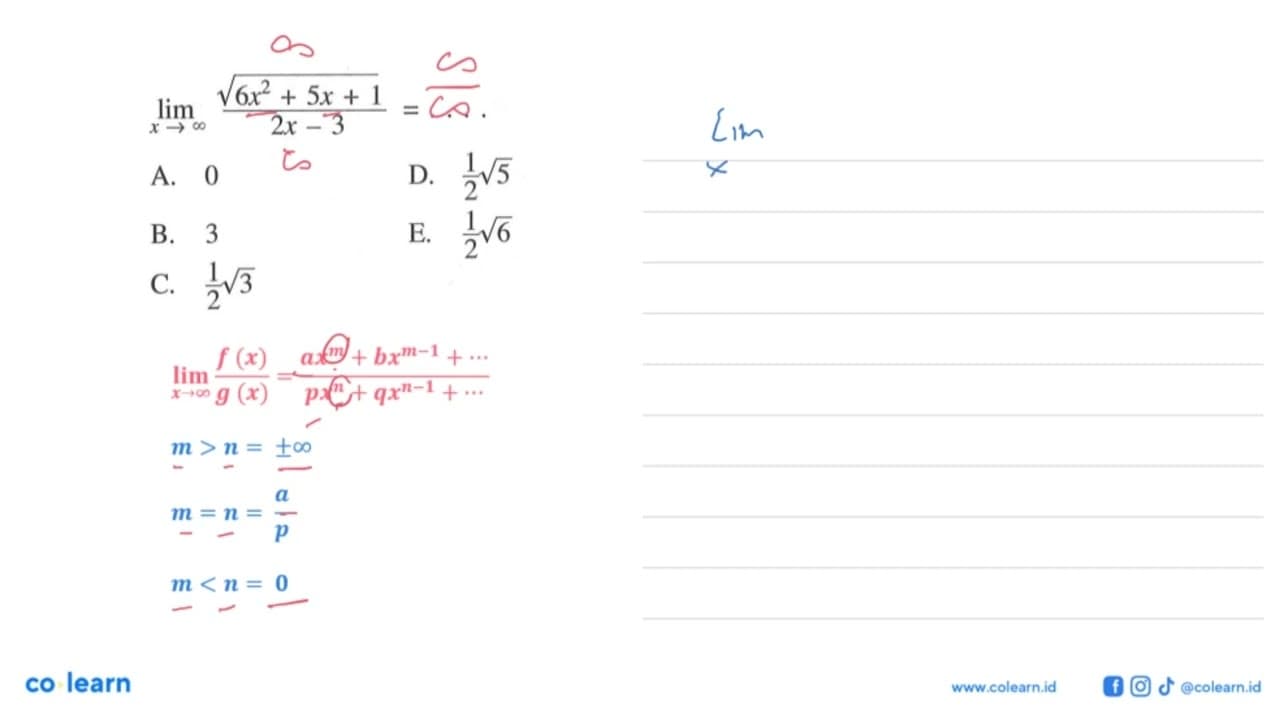 ∞
lim x → ∞ √(6x² + 5x + 1) / (2x − 3) = ∞/∞ .
∞
A. 0 D. 1/2 √5
B. 3 E. 1/2 √6
C. 1/2 √3
lim x→∞ f (x) / g (x) = (ax^m + bx^(m−1) + ⋯) / (px^n + qx^(n−1) + ⋯)
m > n = ±∞
m = n = a/p
m < n = 0
Lim
x
co learn
www.colearn.id
@colearn.id